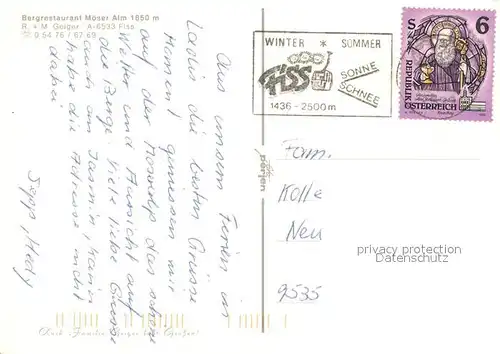 Bergrestaurant Möser Alm 1850 m
R. + M. Geiger A-6533 Fiss
☎ 0 54 76 / 67 69
WINTER * SOMMER
FISS
SONNE
SCHNEE
1436 - 2500 m
S 6
REPUBLIK
ÖSTERREICH
Aus unsern Ferien in
Ladis die besten Grüsse
Moment geniessen wir
auf der Möseralp das schöne
Wetter und Aussicht auf
die Berge. Viele liebe Grüsse
auch an Jasmin, Karin
habe die Adresse nicht
dabei
Sepp, Hedy
Fam.
Kolle
Neu
9535
perlen
privacy protection
Datenschutz